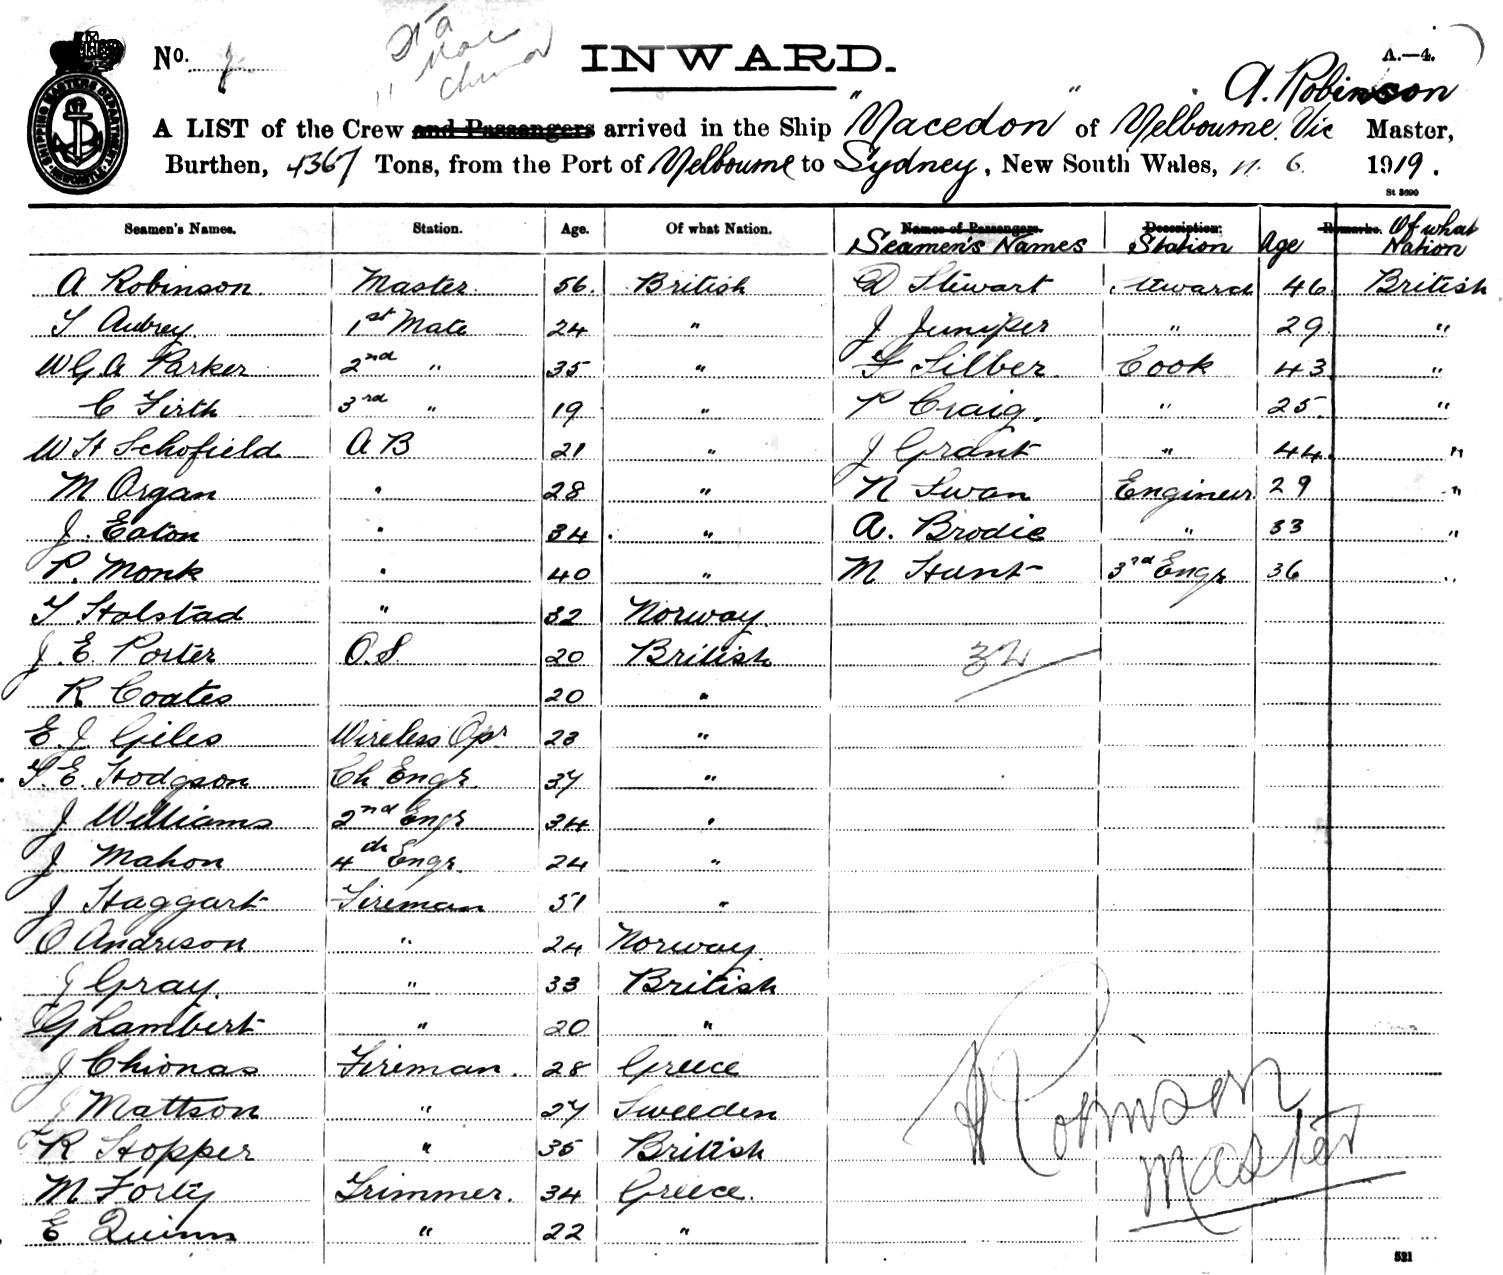 No.
INWARD.
A.—4.
SHIPPING MASTERS DEPARTMENT NEWCASTLE
A. Robinson
A LIST of the Crew and Passengers arrived in the Ship "Macedon" of Melbourne. Vic Master,
Burthen, 4367 Tons, from the Port of Melbourne to Sydney, New South Wales, 11. 6. 1919.
St 3690
Seamen's Names. Station. Age. Of what Nation. Names of Passengers. Description. Remarks. Of what
Seamen's Names Station Age Nation
A Robinson. Master. 56. British D Stewart Steward 46 British
T Aubrey 1st Mate 24 " J Juniper " 29 "
W G A Parker 2nd " 35 " F Silber Cook 43 "
C Firth 3rd " 19 " P Craig. " 25. "
W H Schofield A B 21 " J Grant " 44. "
M Organ " 28 " N Swan Engineer 29 "
J. Eaton " 34 " A. Brodie " 33 "
P. Monk " 40 " M Hunt 3rd Engr 36 "
T Holstad " 32 Norway.
J. E. Porter O.S. 20 British 32
R Coates 20 "
E. J. Giles Wireless Opr 23 "
T. E. Hodgson Ch Engr. 37 "
J Williams 2nd Engr 34 "
J Mahon 4th Engr. 24 "
J Haggart Fireman 51 "
O Andrison " 24 Norway.
J Gray. " 33 British
G Lambert " 20 "
J Chionas Fireman. 28 Greece
J Mattson " 27 Sweeden
R Hopper " 35 British
M Forty Trimmer. 34 Greece.
E Quinn " 22 "
A Robinson
Master
521